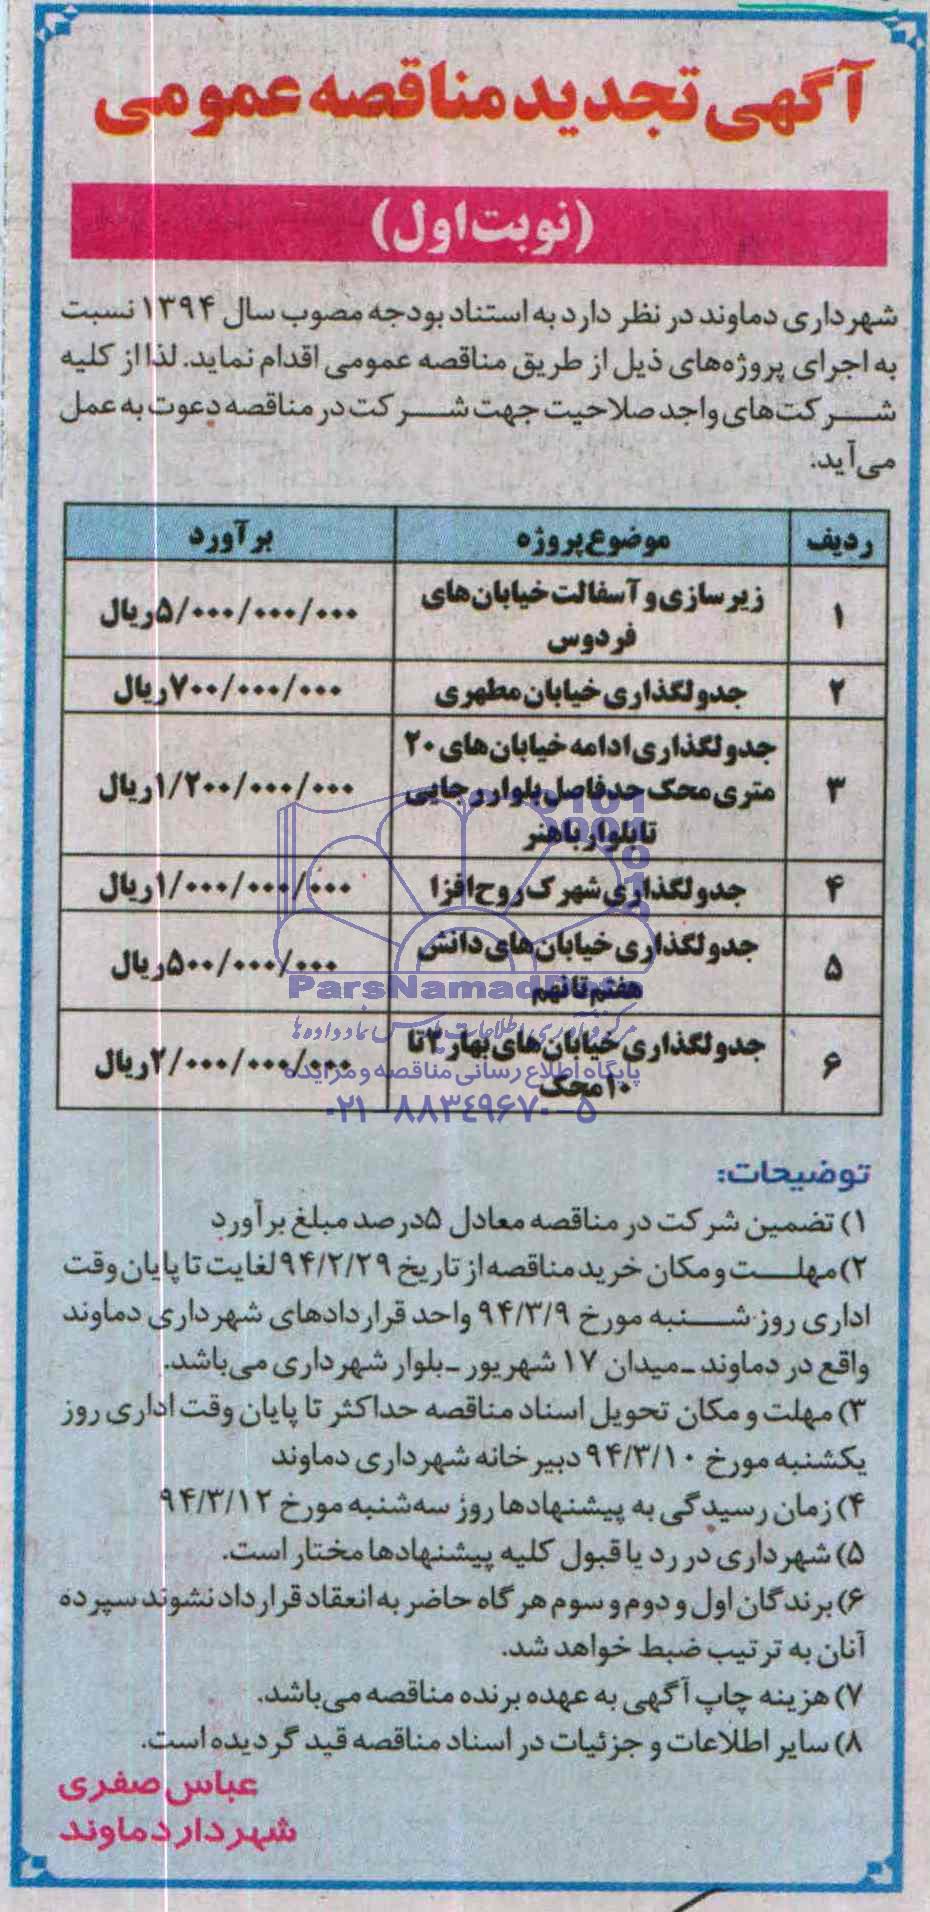 آگهی تجدید مناقصه عمومی
(نوبت اول)
شهرداری دماوند در نظر دارد به استناد بودجه مصوب سال ۱۳۹۴ نسبت
به اجرای پروژه‌های ذیل از طریق مناقصه عمومی اقدام نماید. لذا از کلیه
شرکت‌های واجد صلاحیت جهت شرکت در مناقصه دعوت به عمل
می‌آید:
ردیف موضوع پروژه برآورد
۱ زیرسازی و آسفالت خیابان‌های
فردوس ۵/۰۰۰/۰۰۰/۰۰۰ ریال
۲ جدولگذاری خیابان مطهری ۷۰۰/۰۰۰/۰۰۰ ریال
۳ جدولگذاری ادامه خیابان‌های ۲۰
متری محک حدفاصل بلوار رجایی
تا بلوار باهنر ۱/۲۰۰/۰۰۰/۰۰۰ ریال
۴ جدولگذاری شهرک روح افزا ۱/۰۰۰/۰۰۰/۰۰۰ ریال
۵ جدولگذاری خیابان‌های دانش
هفتم تا نهم ۵۰۰/۰۰۰/۰۰۰ ریال
۶ جدولگذاری خیابان‌های بهار ۲ تا
۱۰ محک ۲/۰۰۰/۰۰۰/۰۰۰ ریال
ParsNamad
مرکز فرآوری اطلاعات پارس نماد داده ها
پایگاه اطلاع رسانی مناقصه و مزایده
۰۲۱-۸۸۳٤۹٦۷۰-۵
توضیحات:
۱) تضمین شرکت در مناقصه معادل ۵درصد مبلغ برآورد
۲) مهلت و مکان خرید مناقصه از تاریخ ۹۴/۲/۲۹ لغایت تا پایان وقت
اداری روز شنبه مورخ ۹۴/۳/۹ واحد قراردادهای شهرداری دماوند
واقع در دماوند ـ میدان ۱۷ شهریور ـ بلوار شهرداری می‌باشد.
۳) مهلت و مکان تحویل اسناد مناقصه حداکثر تا پایان وقت اداری روز
یکشنبه مورخ ۹۴/۳/۱۰ دبیرخانه شهرداری دماوند
۴) زمان رسیدگی به پیشنهادها روز سه‌شنبه مورخ ۹۴/۳/۱۲
۵) شهرداری در رد یا قبول کلیه پیشنهادها مختار است.
۶) برندگان اول و دوم و سوم هرگاه حاضر به انعقاد قرارداد نشوند سپرده
آنان به ترتیب ضبط خواهد شد.
۷) هزینه چاپ آگهی به عهده برنده مناقصه می‌باشد.
۸) سایر اطلاعات و جزئیات در اسناد مناقصه قید گردیده است.
عباس صفری
شهردار دماوند